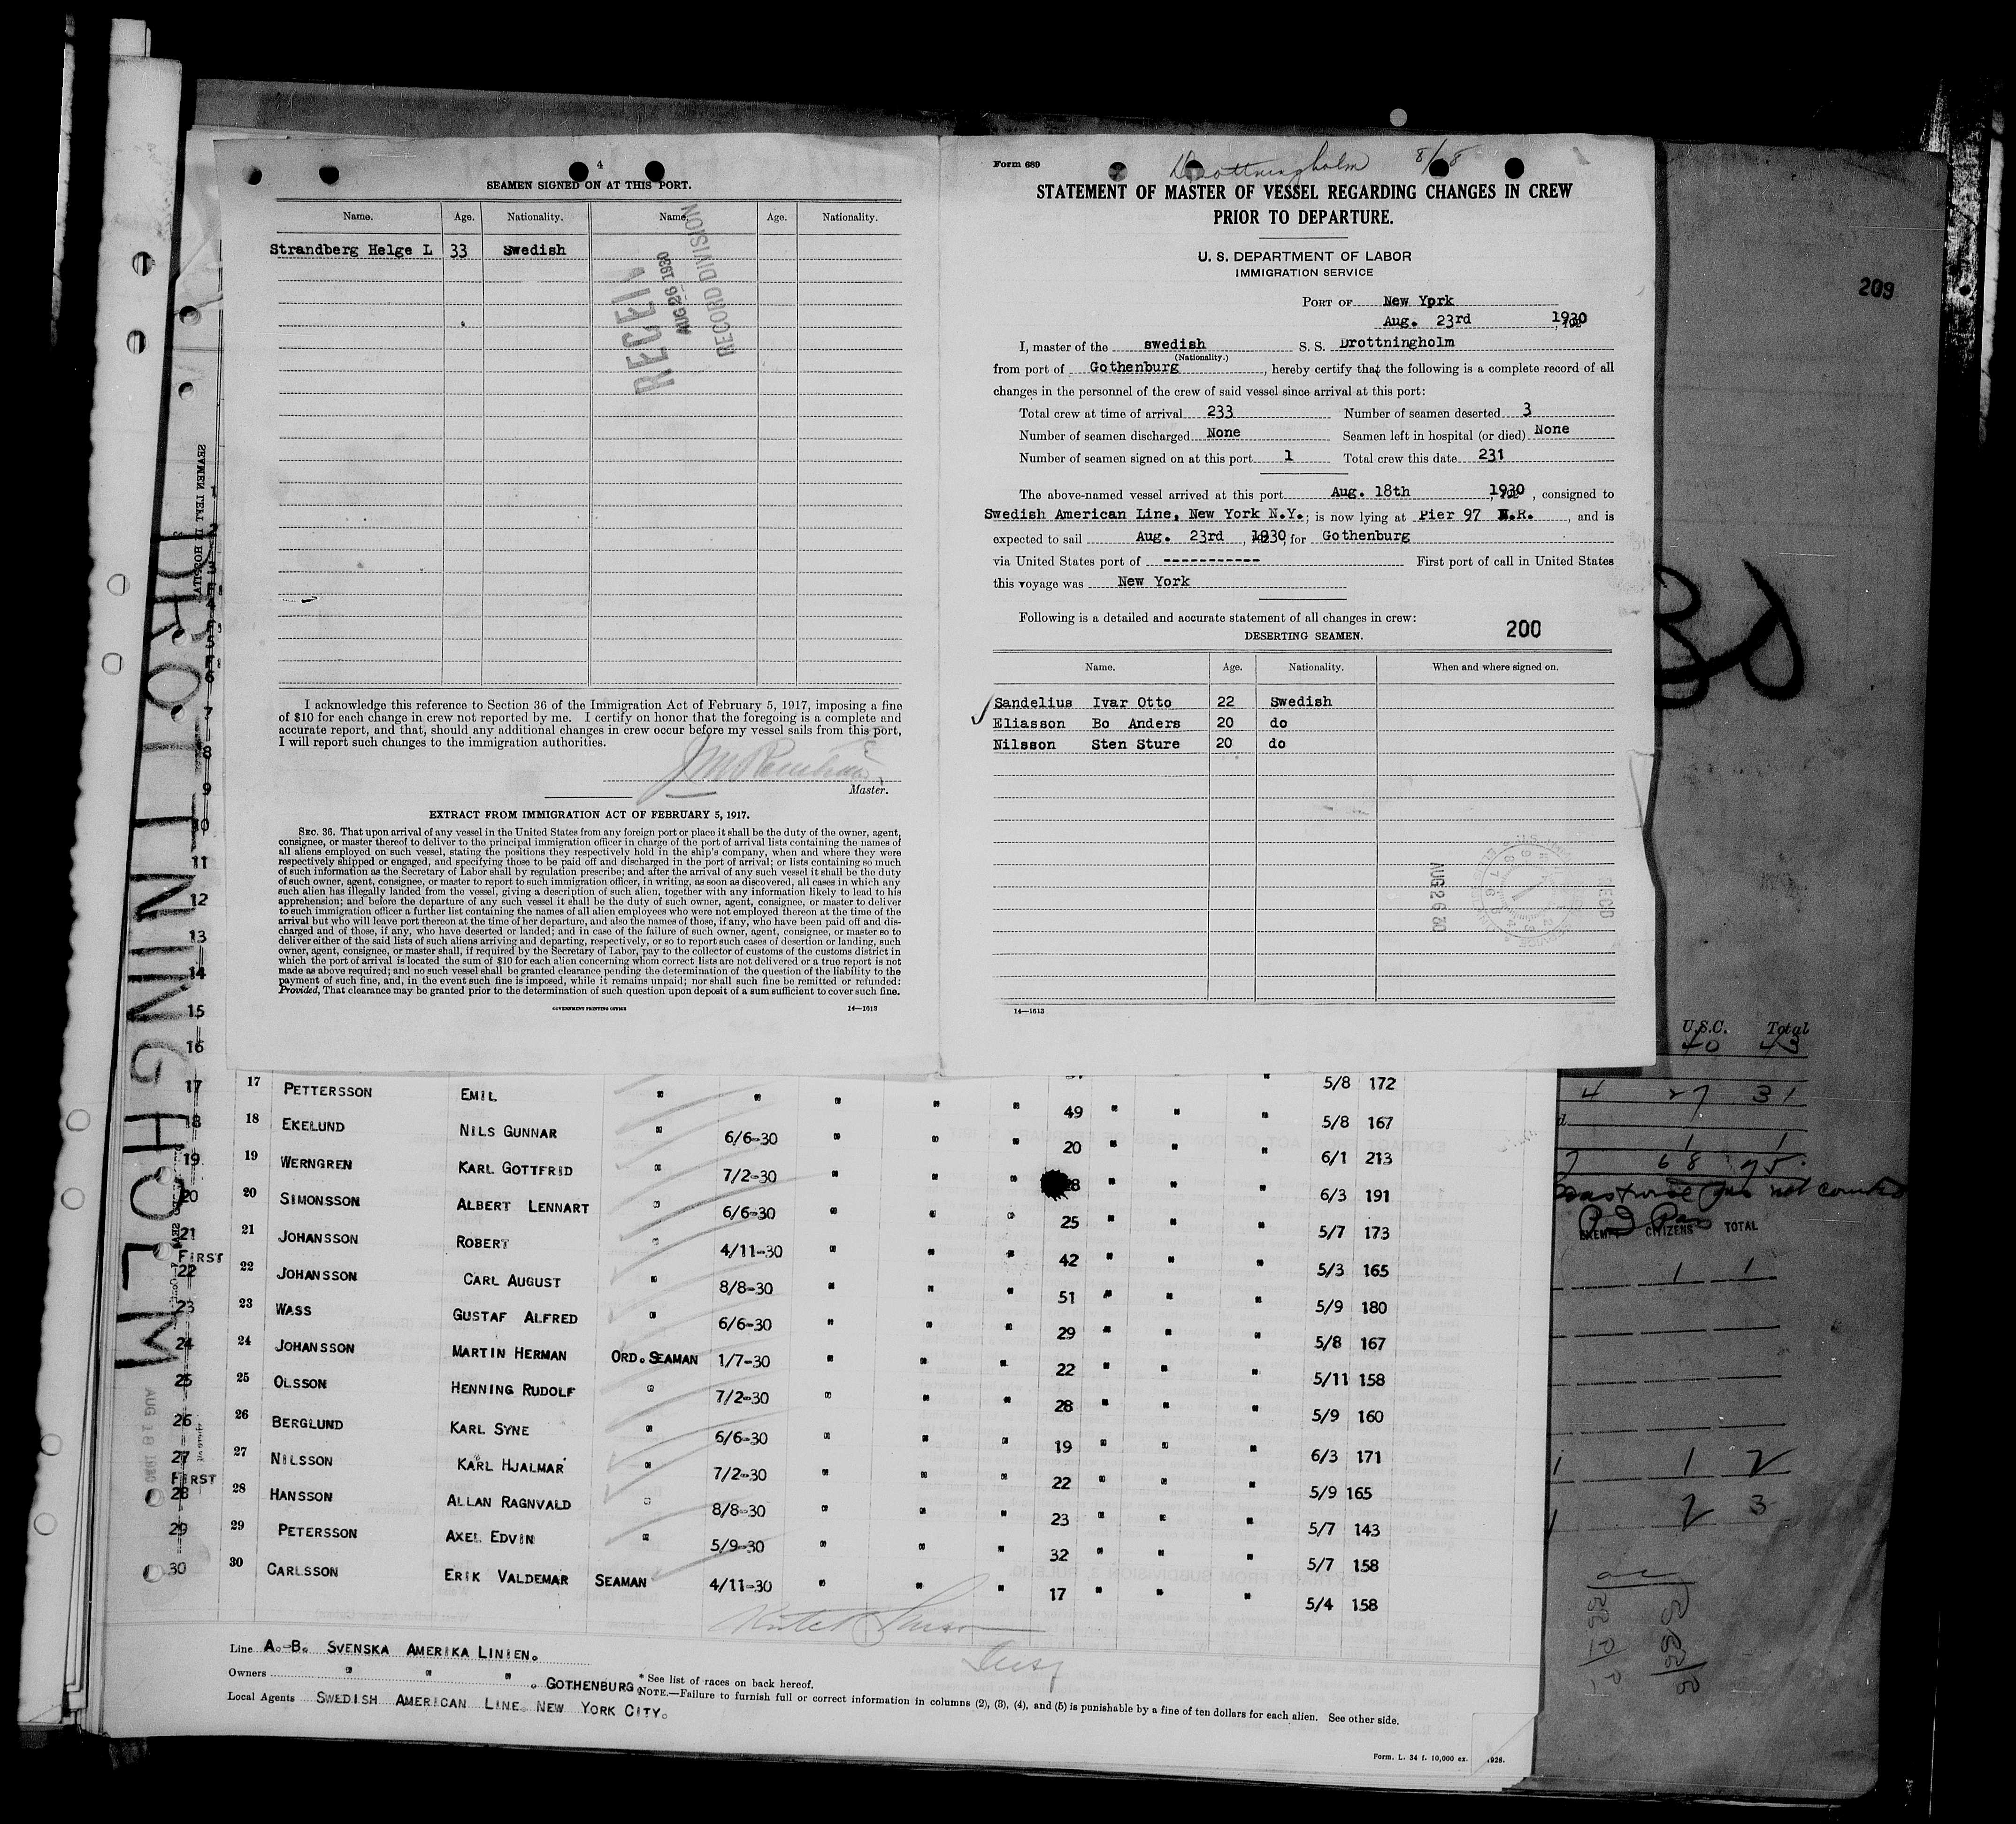 4
SEAMEN SIGNED ON AT THIS PORT.
Name. Age. Nationality. Name. Age. Nationality.
Strandberg Helge L 33 Swedish
AUG 26 1930
RECORD DIVISION
I acknowledge this reference to Section 36 of the Immigration Act of February 5, 1917, imposing a fine
of $10 for each change in crew not reported by me. I certify on honor that the foregoing is a complete and
accurate report, and that, should any additional changes in crew occur before my vessel sails from this port,
I will report such changes to the immigration authorities.
Master.
EXTRACT FROM IMMIGRATION ACT OF FEBRUARY 5, 1917.
SEC. 36. That upon arrival of any vessel in the United States from any foreign port or place it shall be the duty of the owner, agent,
consignee, or master thereof to deliver to the principal immigration officer in charge of the port of arrival lists containing the names of
all aliens employed on such vessel, stating the positions they respectively hold in the ship's company, when and where they were
respectively shipped or engaged, and specifying those to be paid off and discharged in the port of arrival; or lists containing so much
of such information as the Secretary of Labor shall by regulation prescribe; and after the arrival of any such vessel it shall be the duty
of such owner, agent, consignee, or master to report to such immigration officer, in writing, as soon as discovered, all cases in which any
such alien has illegally landed from the vessel, giving a description of such alien, together with any information likely to lead to his
apprehension; and before the departure of any such vessel it shall be the duty of such owner, agent, consignee, or master to deliver
to such immigration officer a further list containing the names of all alien employees who were not employed thereon at the time of the
arrival but who will leave port thereon at the time of her departure, and also the names of those, if any, who have been paid off and dis-
charged and of those, if any, who have deserted or landed; and in case of the failure of such owner, agent, consignee, or master so to
deliver either of the said lists of such aliens arriving and departing, respectively, or so to report such cases of desertion or landing, such
owner, agent, consignee, or master shall, if required by the Secretary of Labor, pay to the collector of customs of the customs district in
which the port of arrival is located the sum of $10 for each alien concerning whom correct lists are not delivered or a true report is not
made as above required; and no such vessel shall be granted clearance pending the determination of the question of the liability to the
payment of such fine, and, in the event such fine is imposed, while it remains unpaid; nor shall such fine be remitted or refunded:
Provided, That clearance may be granted prior to the determination of such question upon deposit of a sum sufficient to cover such fine.
GOVERNMENT PRINTING OFFICE 14—1613
Form 689
Drottningholm 8/8
STATEMENT OF MASTER OF VESSEL REGARDING CHANGES IN CREW
PRIOR TO DEPARTURE.
U. S. DEPARTMENT OF LABOR
IMMIGRATION SERVICE
PORT OF New York
Aug. 23rd 1930
I, master of the swedish S. S. Drottningholm
(Nationality.)
from port of Gothenburg, hereby certify that the following is a complete record of all
changes in the personnel of the crew of said vessel since arrival at this port:
Total crew at time of arrival 233 Number of seamen deserted 3
Number of seamen discharged None Seamen left in hospital (or died) None
Number of seamen signed on at this port 1 Total crew this date 231
The above-named vessel arrived at this port Aug. 18th 1930, consigned to
Swedish American Line, New York N.Y.; is now lying at Pier 97 N.R., and is
expected to sail Aug. 23rd, 1930, for Gothenburg
via United States port of ----------- First port of call in United States
this voyage was New York
Following is a detailed and accurate statement of all changes in crew:
DESERTING SEAMEN. 200
Name. Age. Nationality. When and where signed on.
Sandelius Ivar Otto 22 Swedish
Eliasson Bo Anders 20 do
Nilsson Sten Sture 20 do
AUG 26 30
REC'D
14—1613
209
DROTTNINGHOLM
AUG 18 1930
SEAMEN LEFT IN HOSPITAL
7
8
9
10
11
12
13
14
15
16
17 17 PETTERSSON EMIL " " " " " " " " 5/8 172
18 18 EKELUND NILS GUNNAR " 6/6-30 " " " 49 " " " 5/8 167
19 19 WERNGREN KARL GOTTFRID " 7/2-30 " " " 20 " " " 6/1 213
20 20 SIMONSSON ALBERT LENNART " 6/6-30 " " " " " " 6/3 191
21 21 JOHANSSON ROBERT " 4/11-30 " " " 25 " " " 5/7 173
FIRST
22 22 JOHANSSON CARL AUGUST " 8/8-30 " " " 42 " " " 5/3 165
23 23 WASS GUSTAF ALFRED " 6/6-30 " " " 51 " " " 5/9 180
24 24 JOHANSSON MARTIN HERMAN ORD. SEAMAN 1/7-30 " " " 29 " " " 5/8 167
25 25 OLSSON HENNING RUDOLF " 7/2-30 " " " 22 " " " 5/11 158
26 26 BERGLUND KARL SYNE " 6/6-30 " " " 28 " " " 5/9 160
27 27 NILSSON KARL HJALMAR " 7/2-30 " " " 19 " " " 6/3 171
FIRST
28 28 HANSSON ALLAN RAGNVALD " 8/8-30 " " " 22 " " " 5/9 165
29 29 PETERSSON AXEL EDVIN " 5/9-30 " " " 23 " " " 5/7 143
30 30 CARLSSON ERIK VALDEMAR SEAMAN 4/11-30 " " " 32 " " " 5/7 158
17 " " " 5/4 158
Line A.-B. SVENSKA AMERIKA LINIEN.
Owners " " ". GOTHENBURG. * See list of races on back hereof.
NOTE.—Failure to furnish full or correct information in columns (2), (3), (4), and (5) is punishable by a fine of ten dollars for each alien. See other side.
Local Agents SWEDISH AMERICAN LINE. NEW YORK CITY.
Form. L. 34 f. 10,000 ex. 1928.
U.S.C. Total
40 43
4 27 31
1 1
7 68 75
not counted
EXEMPT CITIZENS TOTAL
1 1
1 1 2
1 2 3